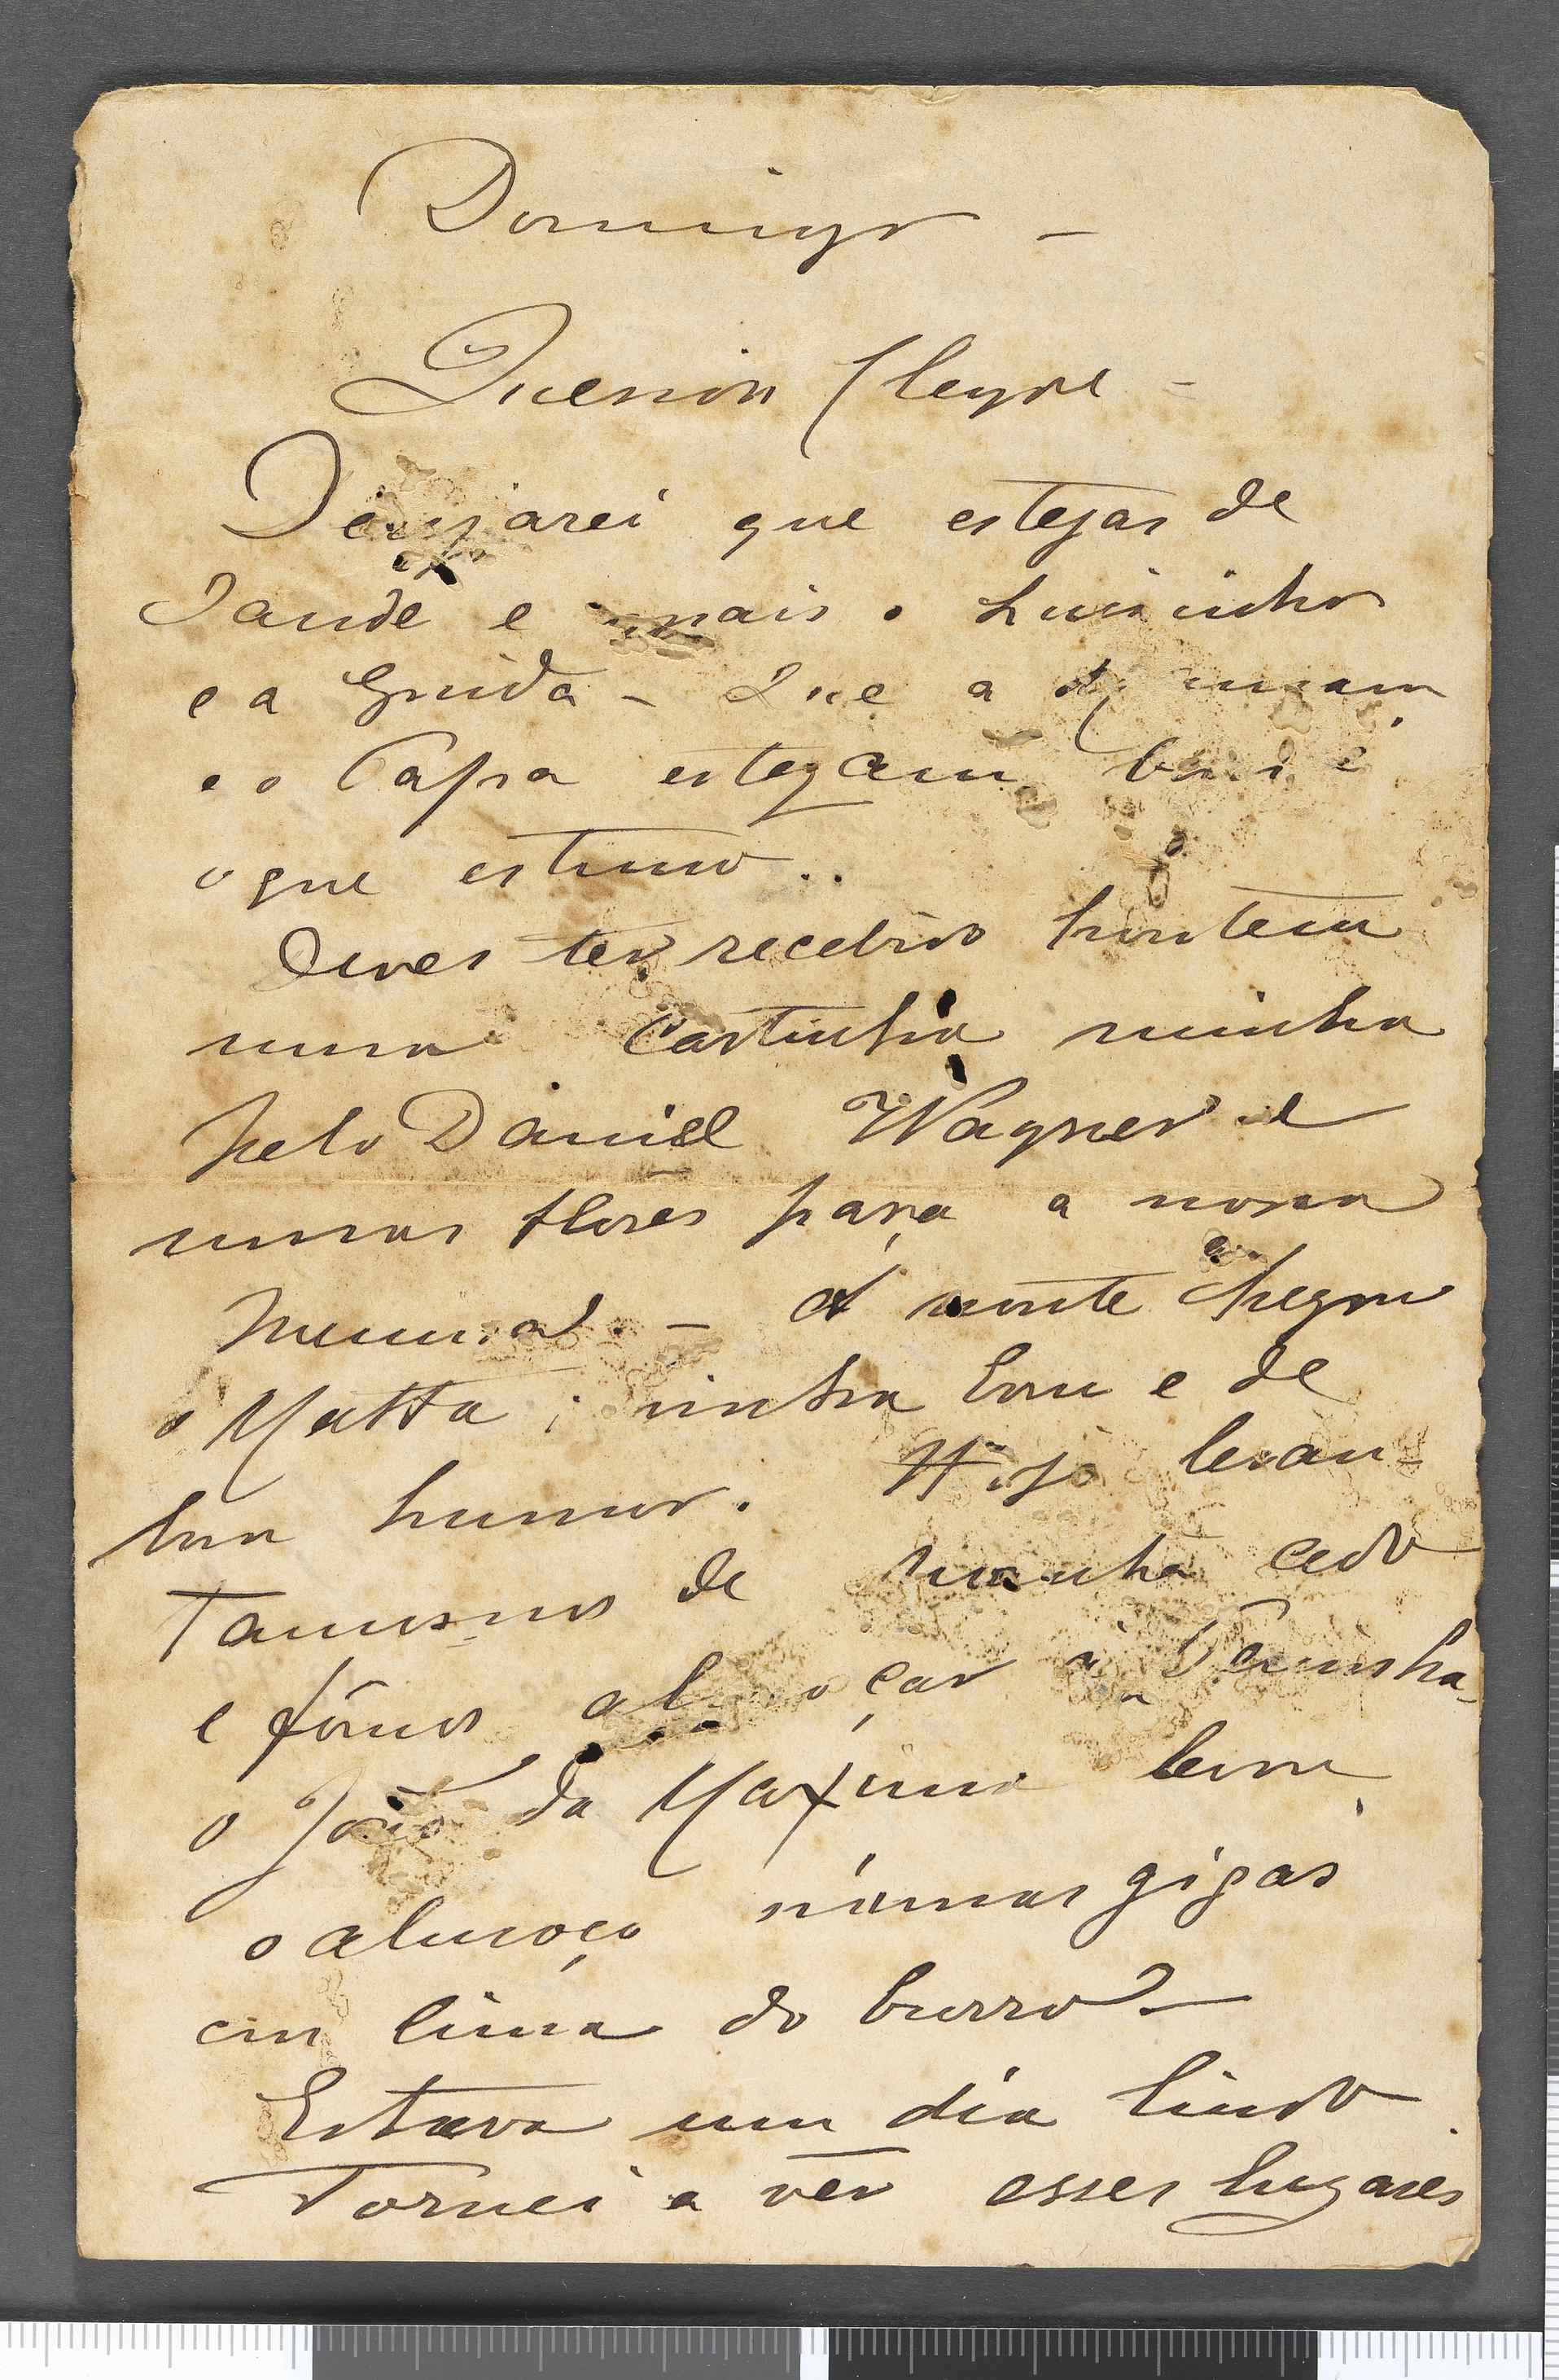 Domingo –
Desejarei que estejas de
saude e mais o Luisinho
e a Guida – Que a
e o Papa estejam bons é
o que estimo..
Deves ter recebido hontem
uma cartinha minha
pelo Daniel Wagner e
umas flores para a nossa
menina. – Á noute chegou
o Matta; vinha bom e de
bom humor. Hoje levan-
tamos nos de manhã cedo
e fômos almoçar á Peninha
o João da Maxima levou
o almoço n'umas gigas
em cima do burro –
Estava um dia lindo.
Tornei a vêr esses lugares